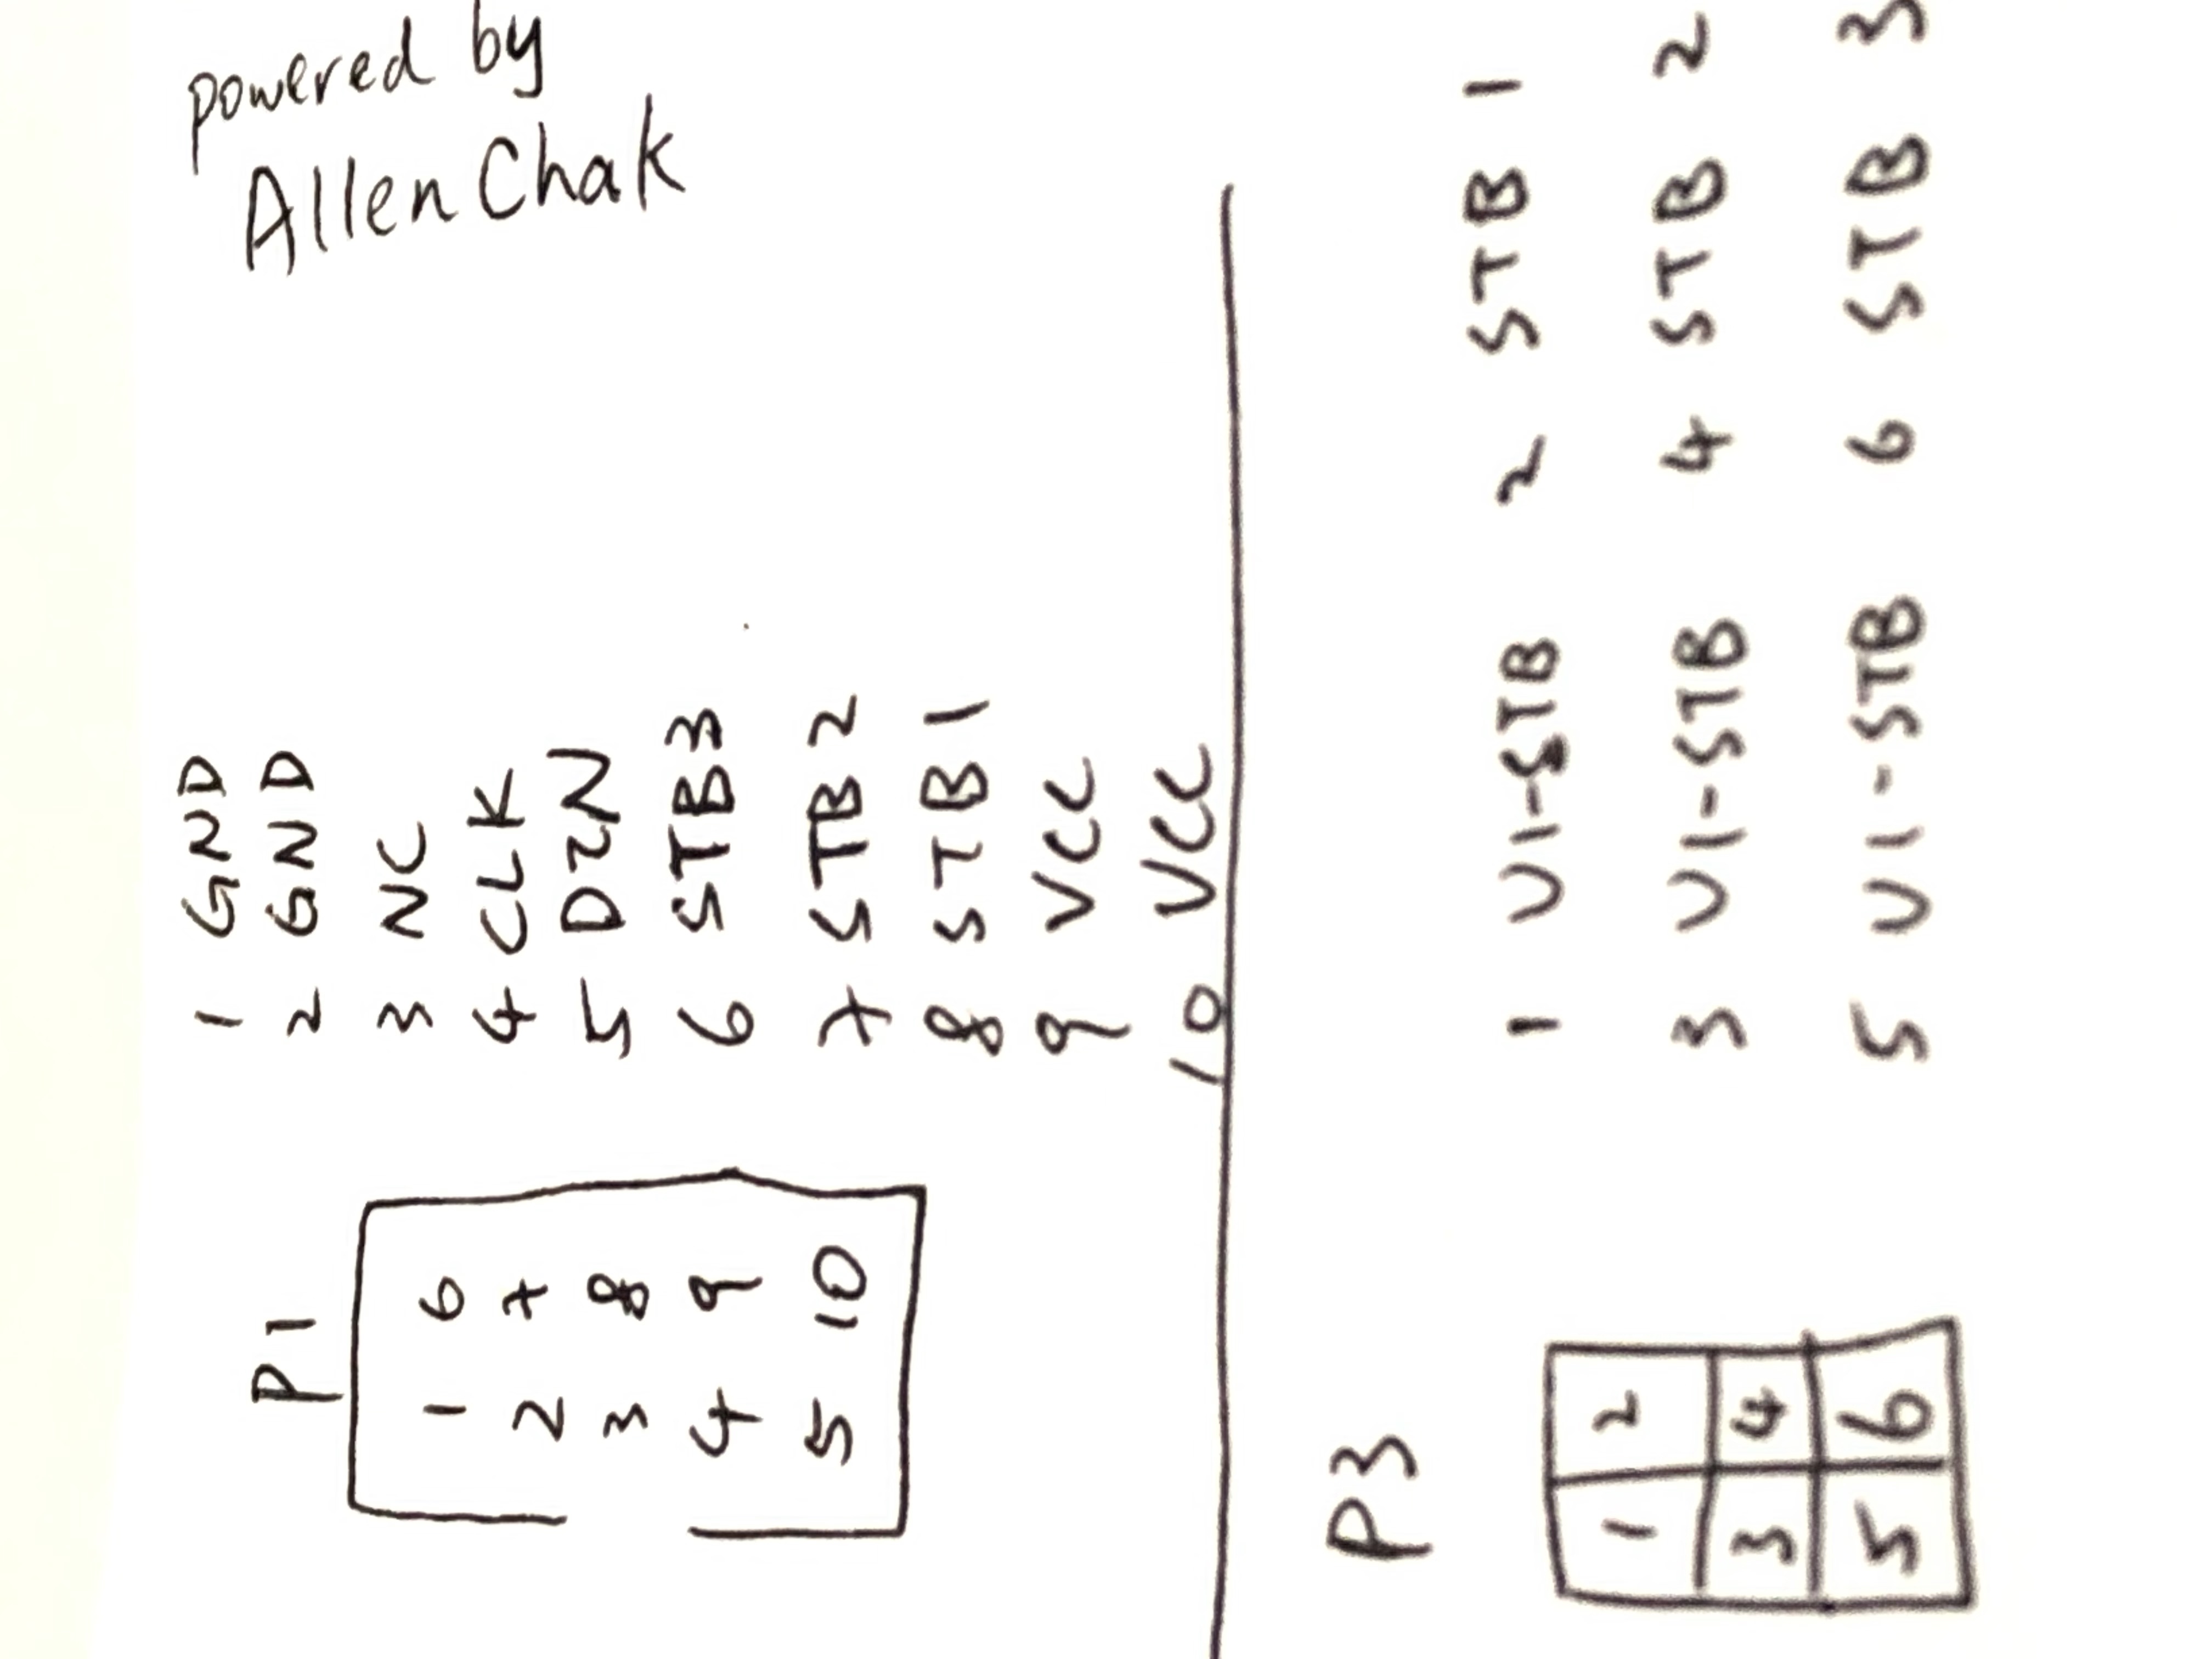 P1
1 6
2 7
3 8
4 9
5 10
1 GND
2 GND
3 NC
4 CLK
5 DIN
6 STB3
7 STB2
8 STB1
9 VCC
10 VCC
powered by
Allen Chak
P3
1 2
3 4
5 6
1 U1-STB 2 STB 1
3 U1-STB 4 STB 2
5 U1-STB 6 STB 3